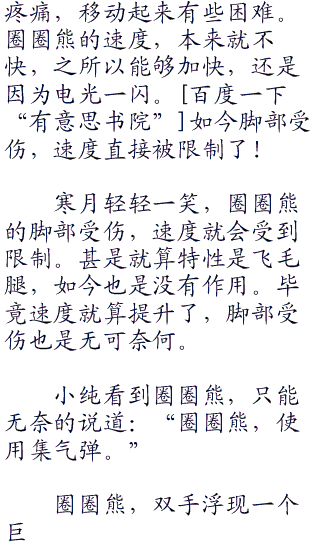 疼痛，移动起来有些困难。
圈圈熊的速度，本来就不
快，之所以能够加快，还是
因为电光一闪。[百度一下
“有意思书院”]如今脚部受
伤，速度直接被限制了！
寒月轻轻一笑，圈圈熊
的脚部受伤，速度就会受到
限制。甚是就算特性是飞毛
腿，如今也是没有作用。毕
竟速度就算提升了，脚部受
伤也是无可奈何。
小纯看到圈圈熊，只能
无奈的说道：“圈圈熊，使
用集气弹。”
圈圈熊，双手浮现一个
巨